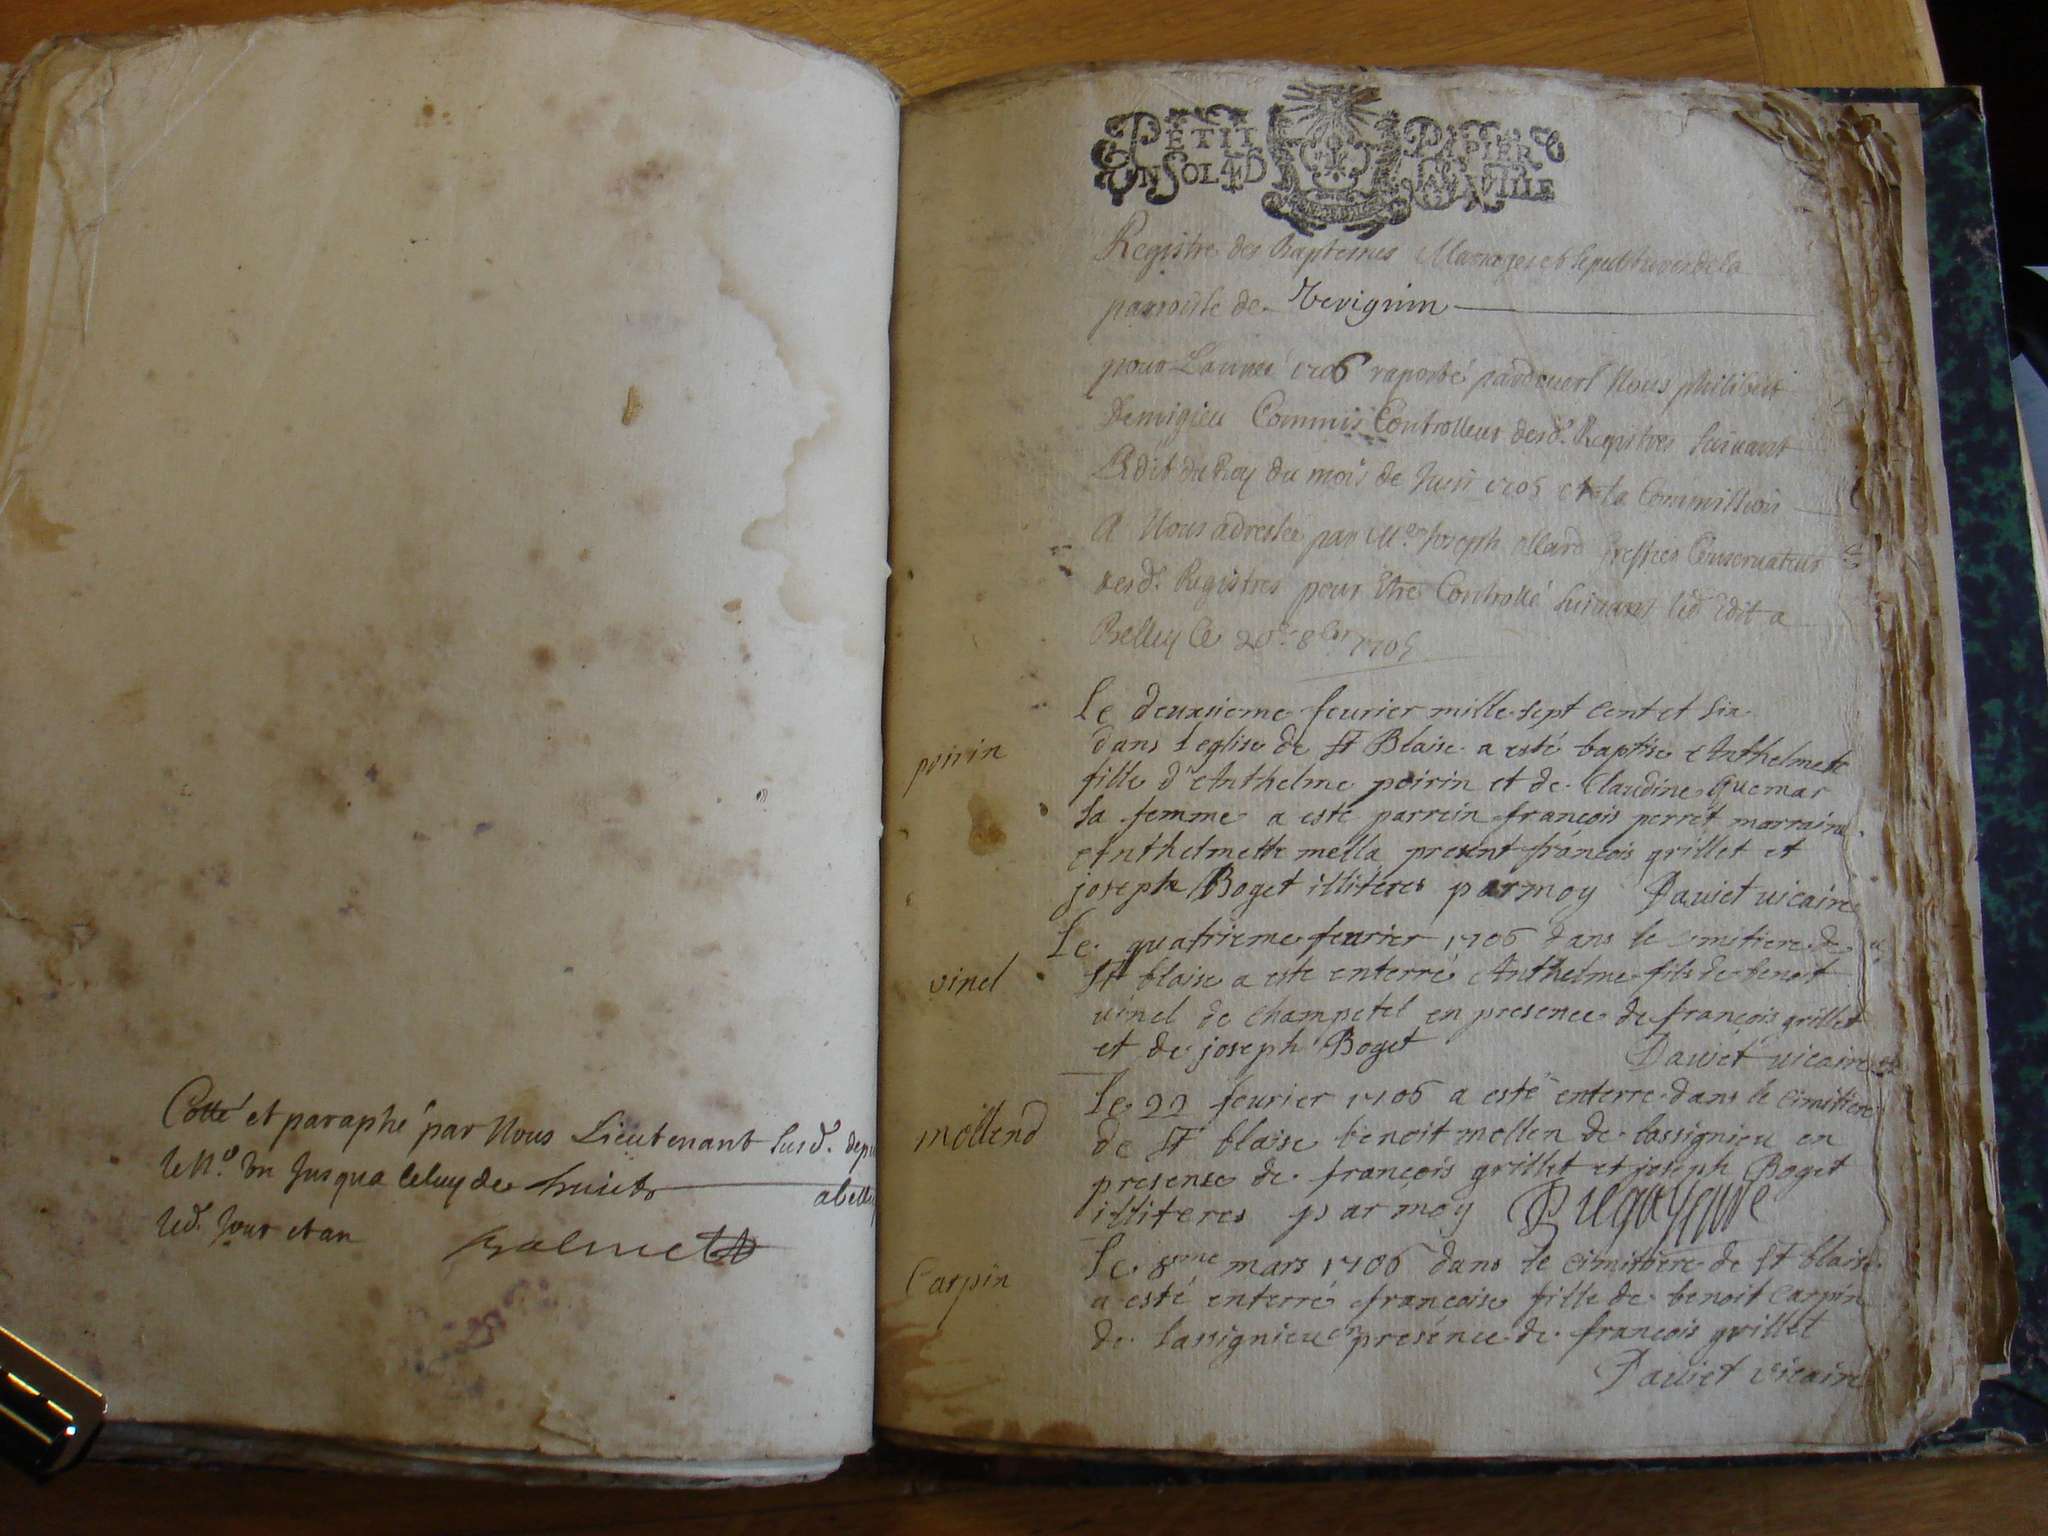 Cotté et paraphé par Nous Lieutenant susd. depu
le N.º un jusqua celuy de huict abelle
led. jour et an
PETIT PAPIER
EN SOL 4 D
Registre des Baptemes Mariages et sepultures de la
parroisse de
pour Lannée 1706 raporté pardevant Nous philibert
Demigieu Commis Controlleur desd. Registres suivant
Ledit du Roy du mois de Juin 1705 et la Commission
A Nous adressée par Mre Joseph allard greffier Conservateur
desd. Registres pour Etre Controllé suivant led Edit a
Belley Ce 20e 8bre 1705
poirin
Le deuxsieme feurier mille sept cent et six
dans leglise de St Blaise a esté baptise Anthelmette
fille d'Anthelme poirin et de Claudine Guemar
sa femme a esté parrein françois perret marraine
Anthelmette mella present françois grillet et
joseph Boget illiteres par moy Dauiet uicaire
vinel
Le quatrieme feurier 1706 dans le cimitiere de
St blaise a este enterré Anthelme fils de benoit
uinel de champetel en presence de françois grillet
et de joseph Boget Dauiet uicaire
mollend
Le 22 feurier 1706 a esté enterre dans le cimitiere
de St blaise benoit mollen de lassignieu en
presense de françois grillet et joseph Boget
illiteres par moy
Carpin
Le 8me mars 1706 dans le cimitiere de St blaise
a esté enterré françoise fille de benoit carpin
de lassignieu en presénce de françois grillet
Dauiet vicaire